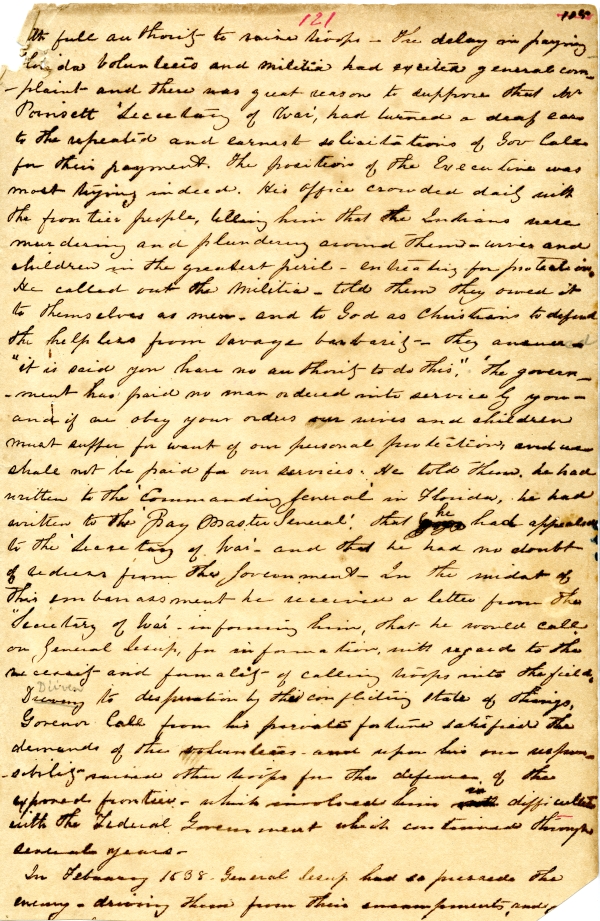 121
full authority to raise troops – the delay in paying
Volunteers and militia had excited general com-
-plaint and there was great reason to suppose that Mr
Poinsett 'Secretary of War', had turned a deaf ear
to the repeated and earnest solicitations of Gov Call
for their payment. The position of the Executive was
most trying indeed. His office crowded daily with
the frontier people, telling him that the Indians were
murdering and plundering around them – wives and
children in the greatest peril – entreating for protection.
He called out the Militia – told them they owed it
to themselves as men – and to God as Christians to defend
the helpless from savage barbarity – they answered
"it is said you have no authority to do this", 'the govern-
-ment has paid no man ordered into service by you –
and if we obey your orders our wives and children
must suffer for want of our personal protection, and we
shall not be paid for our services. He told them, he had
written to the 'Commanding General' in Florida, he had
written to the 'Pay Master General', that he had appealed
to the 'Secretary of War' – and that he had no doubt
of redress from the Government – In the midst of
this embarrassment he received a letter from the
"Secretary of War – informing him, that he would call
on General Jesup, for information, with regard to the
necessity and formality of calling troops into the field.
Driven
to desperation by the conflicting state of things,
Govenor Call from his private fortune satisfied the
demands of the volunteers – and upon his own respon-
-sibility raised other troops for the defense of the
exposed frontier – which involved him in difficulties
with the Federal Government which continued through
several years –
In February 1838 – General Jesup had so pressed the
enemy – driving them from their encampments and